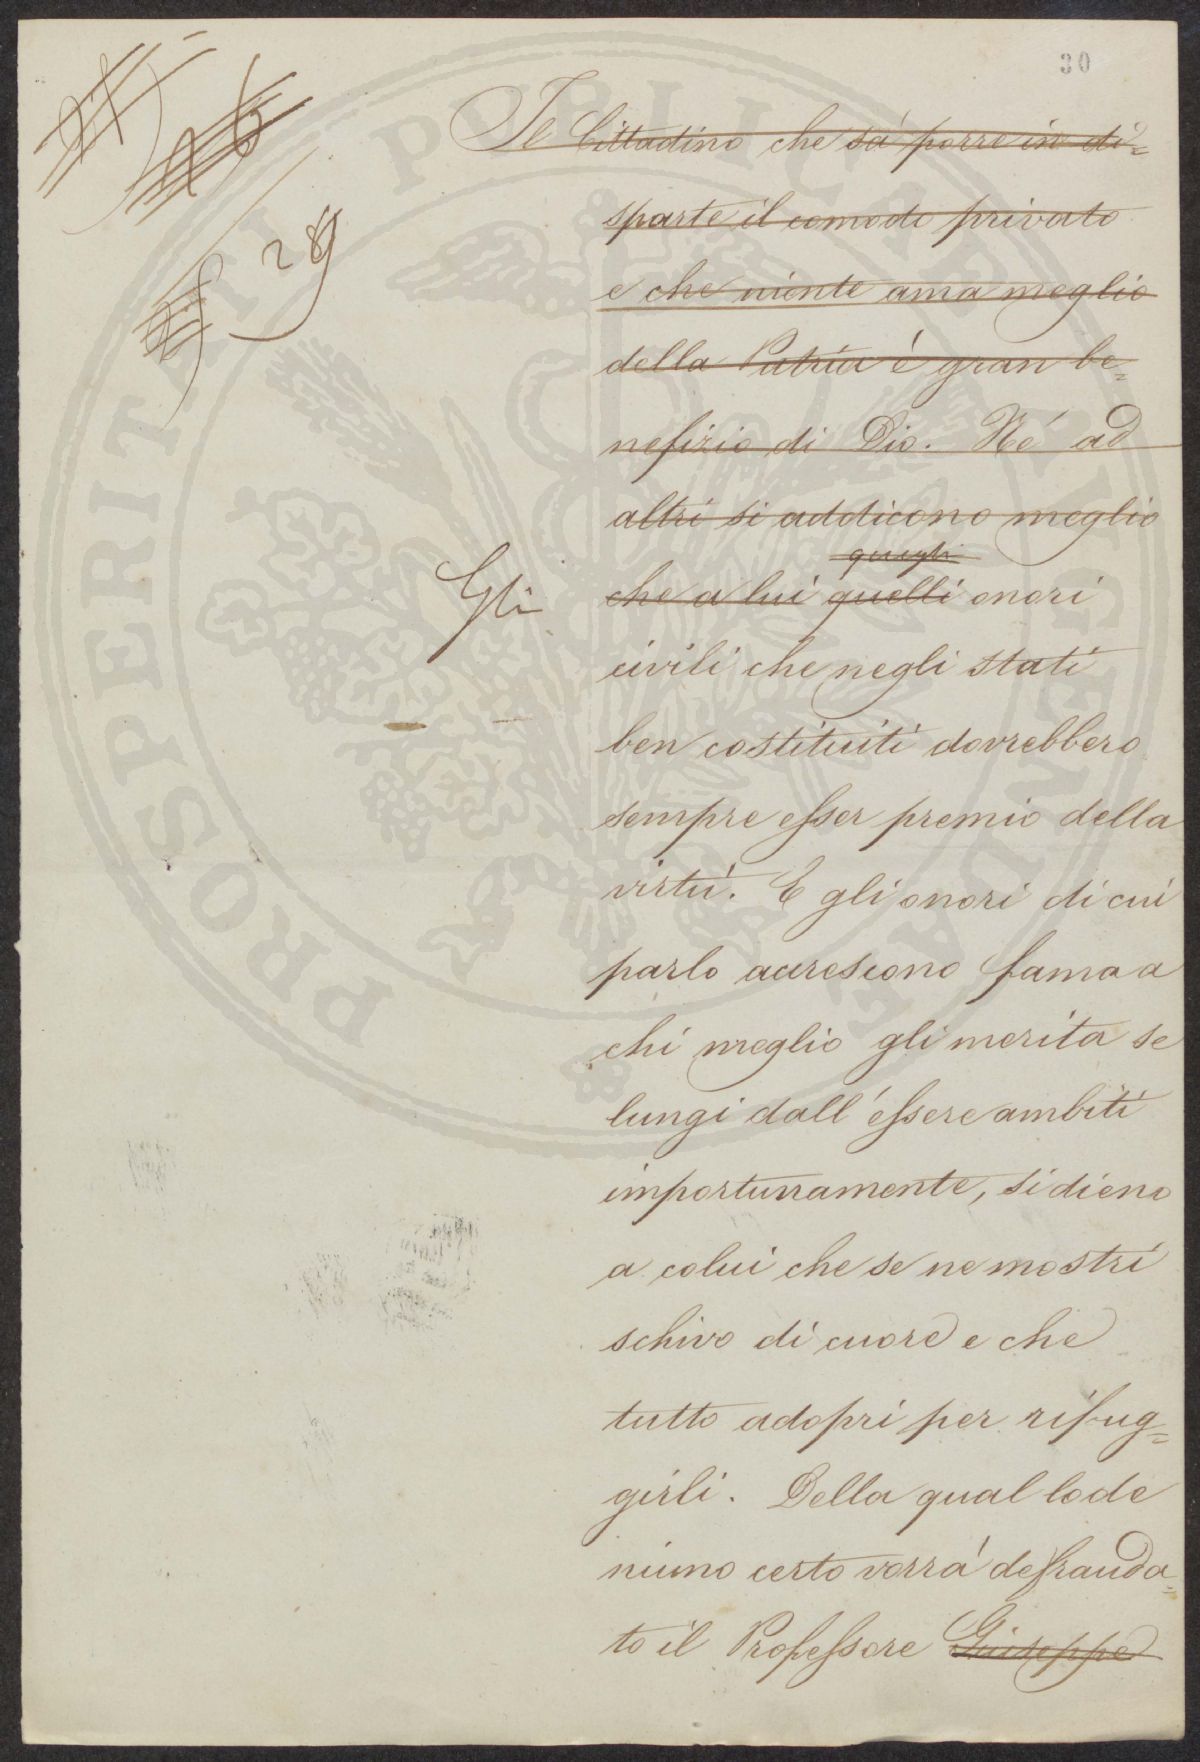 30
29
Il Cittadino che sà porre in di=
sparte il comodo privato
e che niente ama meglio
della Patria è gran be=
nefizio di Dio. Né ad
altri si addicono meglio
quegli
Gli che a lui quelli onori
civili che negli stati
ben costituiti dovrebbero
sempre esser premio della
virtù. E gli onori di cui
parlo accrescono fama a
chi meglio gli merita se
lungi dall'essere ambiti
importunamente, si dieno
a colui che se ne mostri
schivo di cuore e che
tutto adopri per rifug=
girli. Della qual lode
niuno certo vorrà defrauda=
to il Professore Giuseppe
PROSPERITATI PUBLICAE AUGENDAE